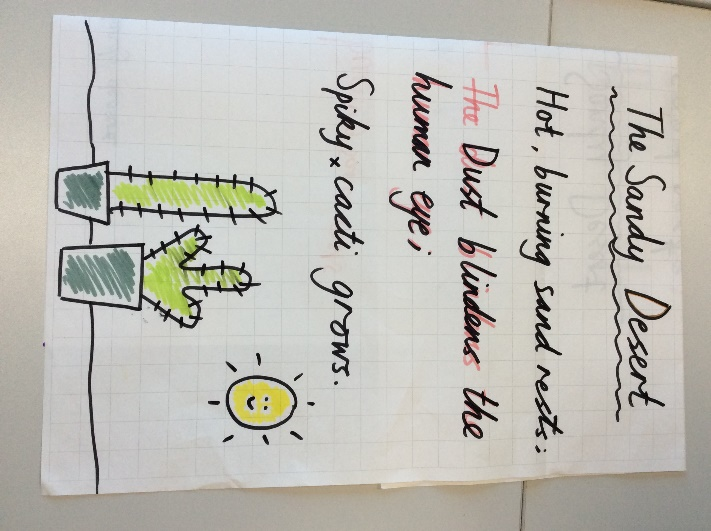 The Sandy Desert
Hot, burning sand rests:
The Dust blindens the
human eye;
Spiky cacti grows.